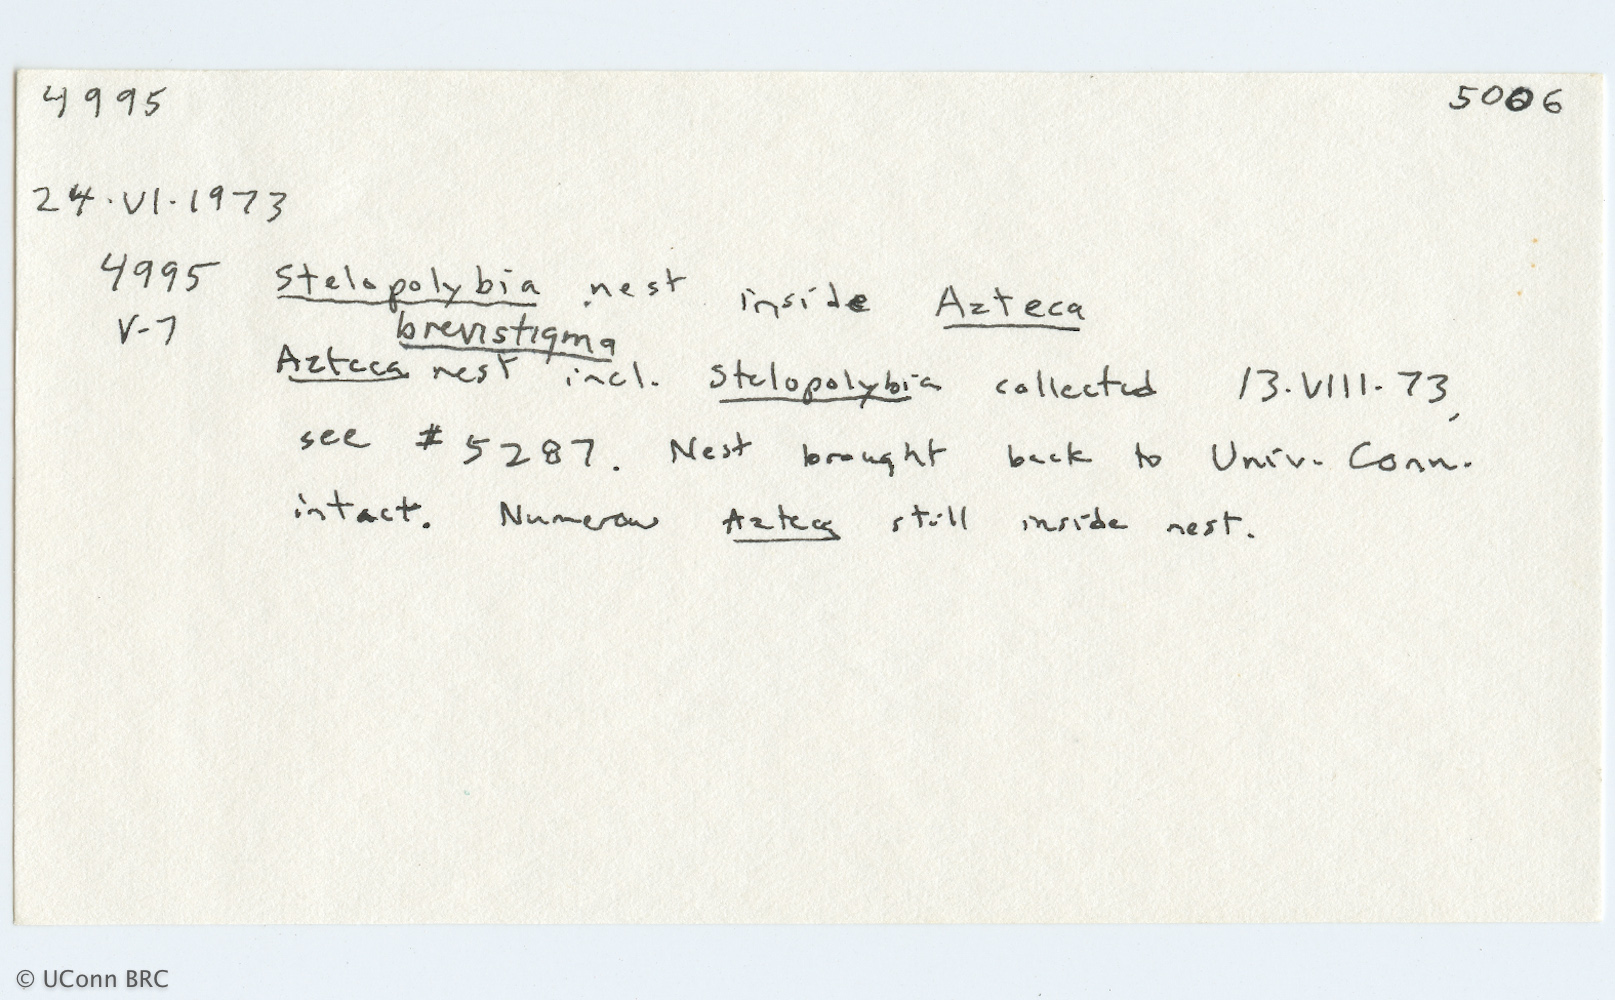 4995 5006
24·VI·1973
4995 Stelopolybia nest inside Azteca
V-7 brevistigma
Azteca nest incl. Stelopolybia collected 13·VIII·73,
see # 5287. Nest brought back to Univ. Conn.
intact. Numerous Azteca still inside nest.
© UConn BRC